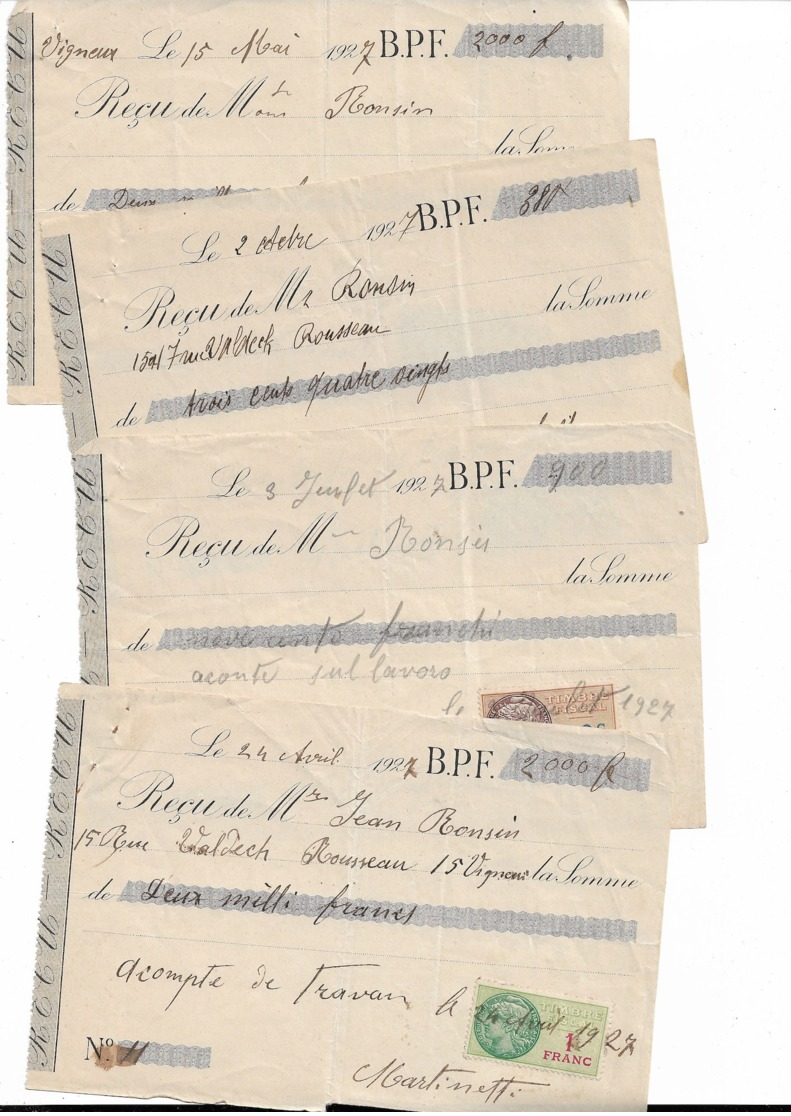 REÇU — REÇU
Vigneux Le 15 Mai 1927 B.P.F. 2000 f
Reçu de Monsr Ronsin
la Somme
de Deux
REÇU
Le 2 octbre 1927 B.P.F. 380
Reçu de Mr Ronsin
la Somme
15 et 17 rue Valdeck Rousseau
de trois cents quatre vingts
REÇU
Le 3 Juillet 1927 B.P.F. 900
Reçu de Mr Ronsin
la Somme
de nove cento franchi
aconte sul lavoro
1927
TIMBRE
FISCAL
REÇU — REÇU
Le 24 Avril 1927 B.P.F. 2000 f
Reçu de Mr Jean Ronsin
15 Rue Valdech Rousseau 15 Vigneux la Somme
de Deux milli francs
Acompte de Travau le 24 Avril 1927
TIMBRE
1
FRANC
No 11
Martinetti